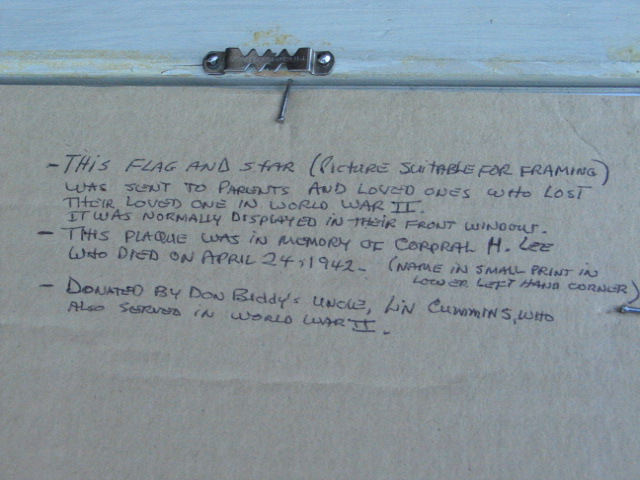 - THIS FLAG AND STAR (PICTURE SUITABLE FOR FRAMING)
WAS SENT TO PARENTS AND LOVED ONES WHO LOST
THEIR LOVED ONE IN WORLD WAR II.
IT WAS NORMALLY DISPLAYED IN THEIR FRONT WINDOW.
- THIS PLAQUE WAS IN MEMORY OF CORPRAL H. LEE
WHO DIED ON APRIL 24, 1942. (NAME IN SMALL PRINT IN
LOWER LEFT HAND CORNER)
- DONATED BY DON BIDDY'S UNCLE, LIN CUMMINS, WHO
ALSO SERVED IN WORLD WAR II.